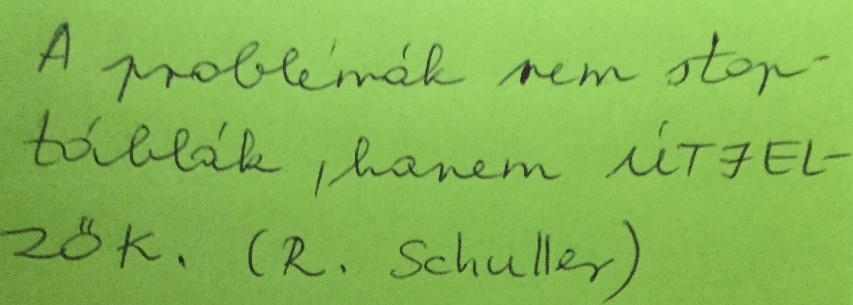 A problémák nem stop-
táblák, hanem ÚTJEL-
ZŐK. (R. Schuller)